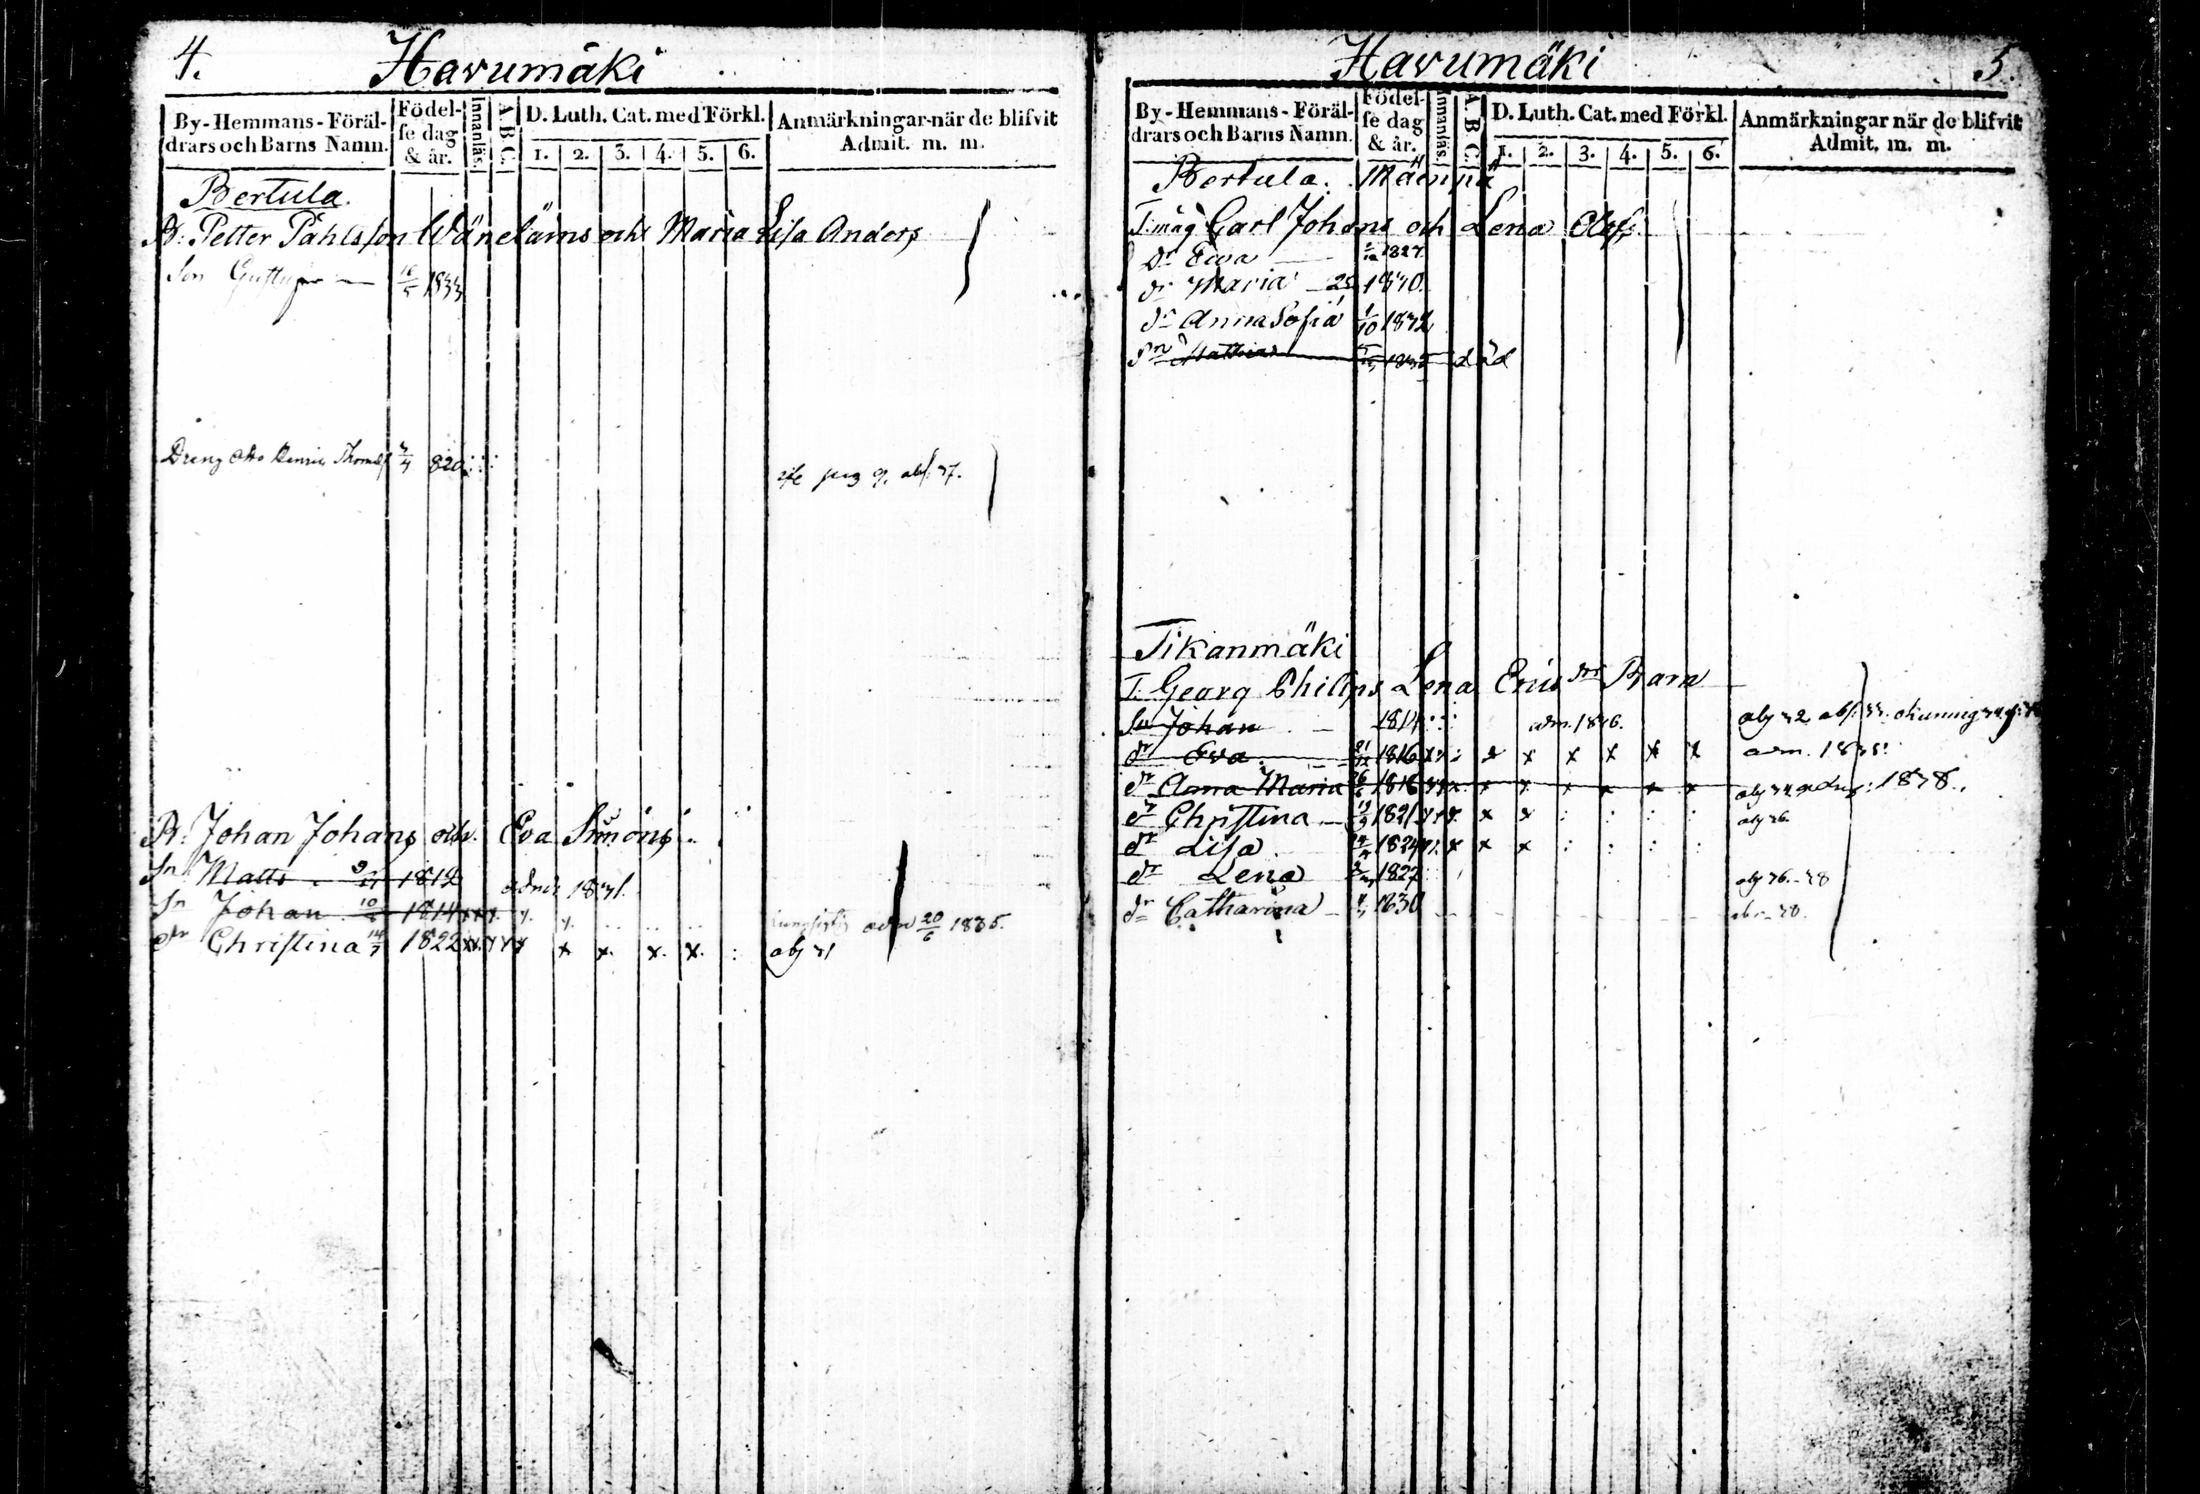 4. Havumäki
By-Hemmans-Föräl-
drars och Barns Namn.
Födel-
se dag
& år.
Innanläs.
A B C.
D. Luth. Cat. med Förkl.
1. 2. 3. 4. 5. 6.
Anmärkningar när de blifvit
Admit. m. m.
Bertula.
B: Petter Påhlsson Wäneläms och Maria Lisa Anders
Son Gustaf 16/5 1833
Dreng Otto Henric Thomass 7/4 820
pag 9. abs: 37.
B: Johan Johans och Eva Simons
Sn Matts 1812 admit 1831.
Sn Johan 10/ 1814 x x x. x. x. adm 20/6 1835.
dr Christina 14/7 1822 x x. x x x x x. x. x. : abs 31
Havumäki 5.
By-Hemmans-Föräl-
drars och Barns Namn.
Födel-
se dag
& år.
Innanläs.
A B C.
D. Luth. Cat. med Förkl.
1. 2. 3. 4. 5. 6.
Anmärkningar när de blifvit
Admit. m. m.
Bertula. Mäenpä
T: måg Carl Johans och Lena Olofs
Dr Ewa 1827.
dr Maria 1830.
dr Anna Sofia 1/10 1832
Sn Mathias död
Tikanmäki
T: Georg Philips Lena Erics dr Barn
Sn Johan 1814 adm. 1836.
dr Eva 1816 x x x x x x adm. 1835.
dr Anna Maria 26/ 1818 x x x x x x 1838.
dr Christina 19/9 1821 x x : : : :
dr Lisa 1824 x x x : : : :
dr Lena 1827
dr Catharina 1830